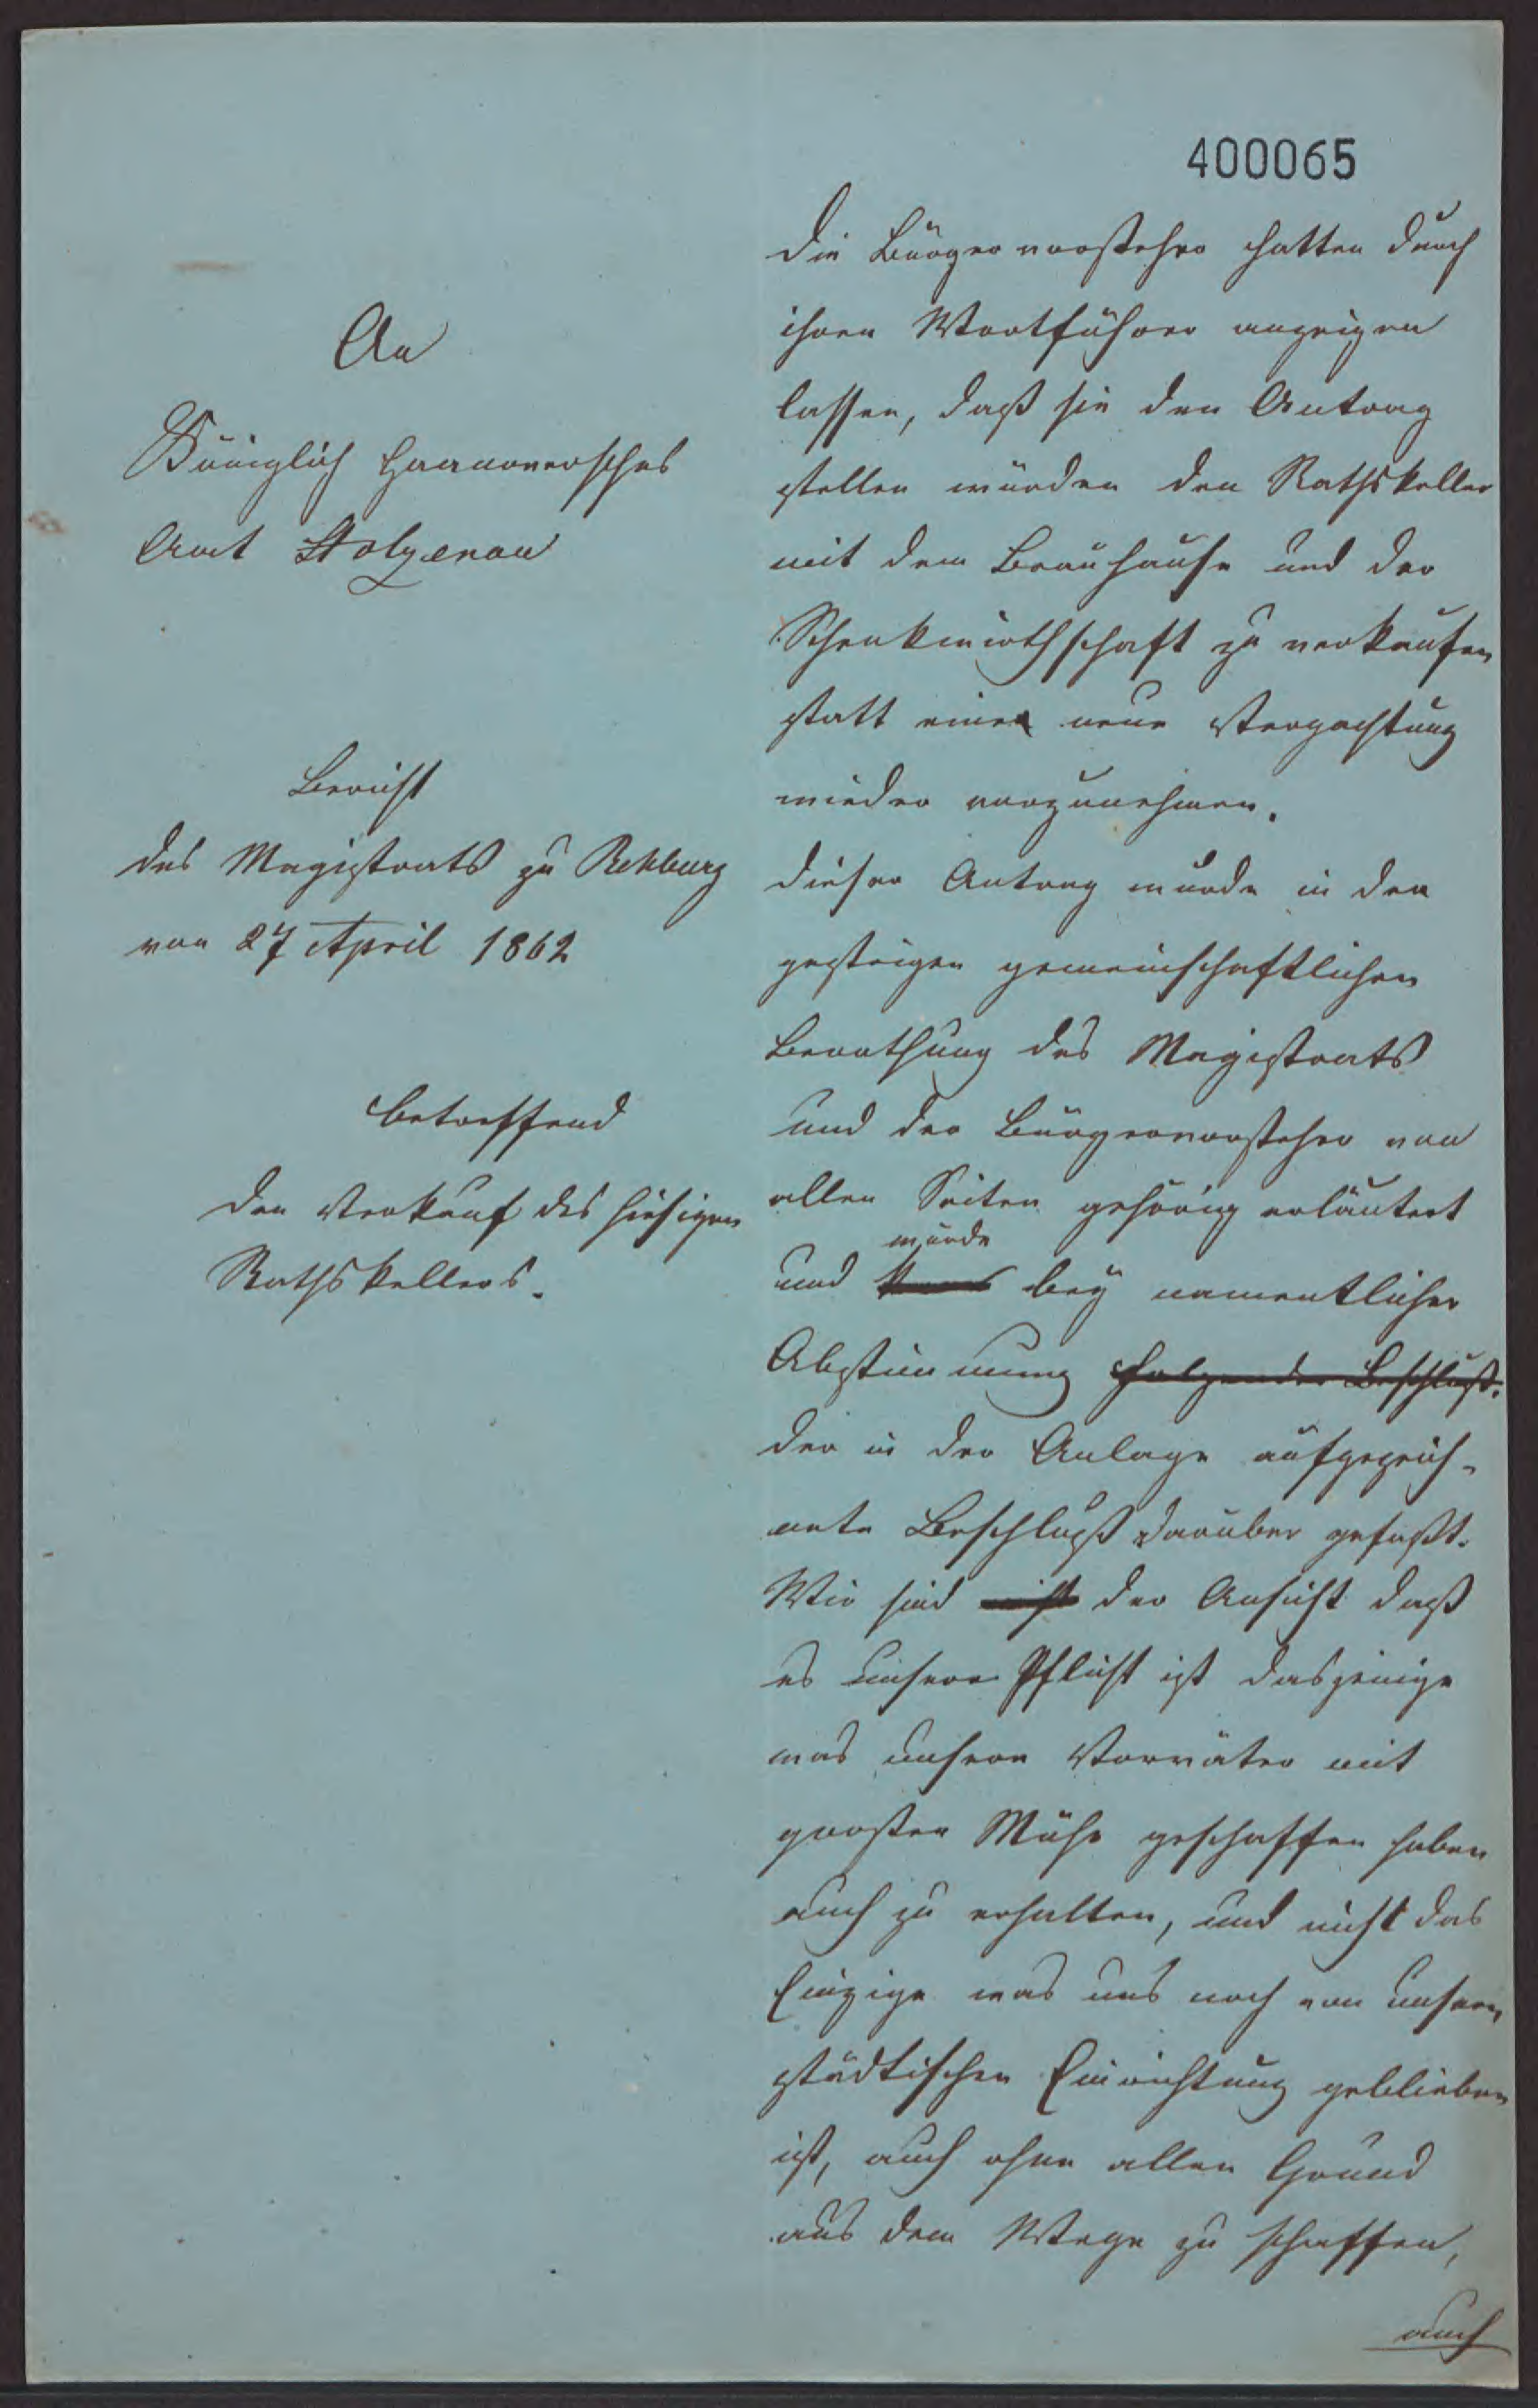 400065
An
Königlich Hannoversches
Amt Stolzenau
Bericht
des Magistrats zu Rehburg
von 27 April 1862
betreffend
den Verkauf des hiesigen
Rathskellers.
Die Bürgervorsteher hatten durch
ihren Wortführer anzeigen
lassen, daß sie den Antrag
stellen würden den Rathskeller
mit dem Brauhause und der
Schenkwirthschaft zu verkaufen
statt eine neue Verpachtung
wieder vorzunehmen.
Dieser Antrag wurde in der
gestrigen gemeinschaftlichen
Berathung des Magistrats
und der Bürgervorsteher von
allen Seiten gehörig erläutert
wurde
und kam bey namentlicher
Abstimmung folgender Beschluß.
der in der Anlage aufgezeich-
nete Beschluß darüber gefaßt.
Wir sind nicht der Ansicht daß
es unsere Pflicht ist dasjenige
was unsere Vorväter mit
großer Mühe geschaffen haben
auch zu erhalten, und nicht das
Einzige was uns noch von unsern
städtischen Einrichtung geblieben
ist, auch ohne allen Grund
aus dem Wege zu schaffen,
auch